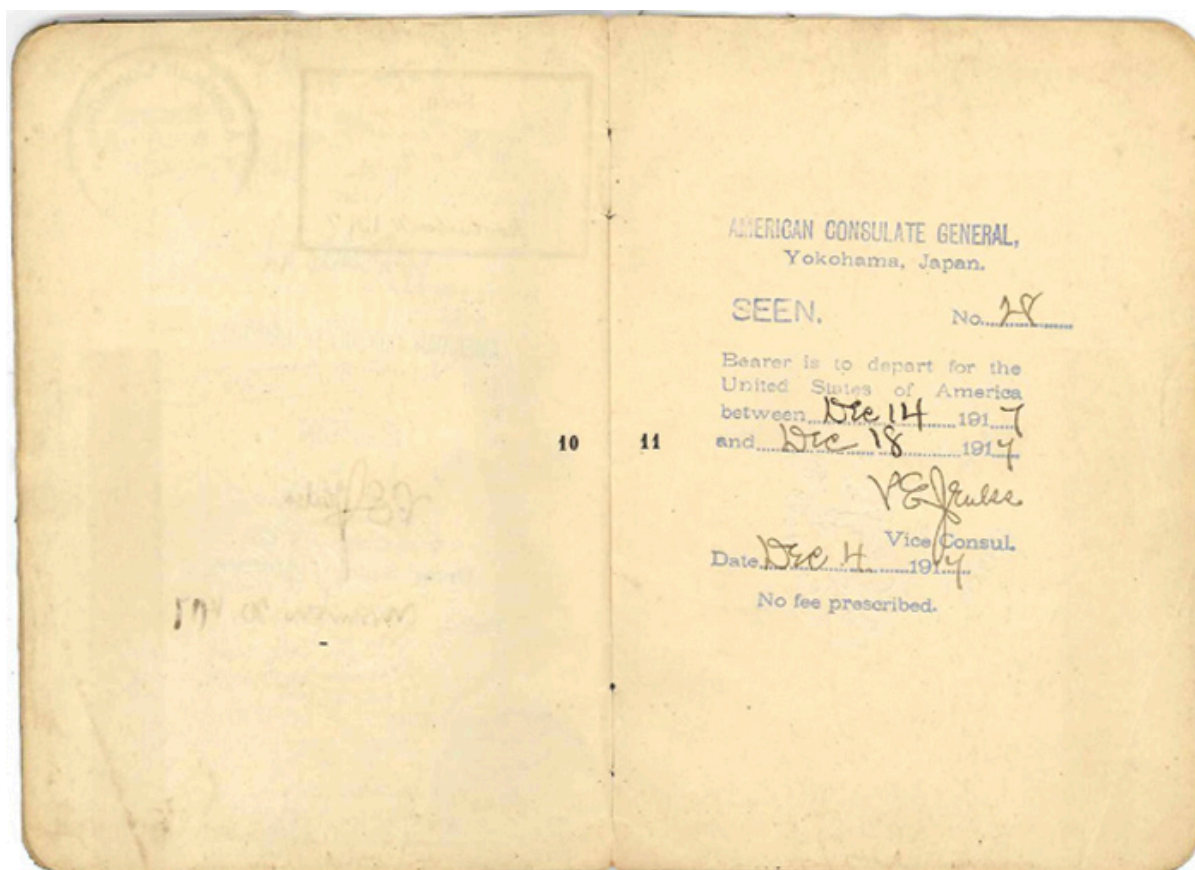 10
11
AMERICAN CONSULATE GENERAL,
Yokohama, Japan.
SEEN. No. 28
Bearer is to depart for the
United States of America
between Dec 14 1917
and Dec 18 1917
Vice Consul.
Date Dec 4 1917
No fee prescribed.